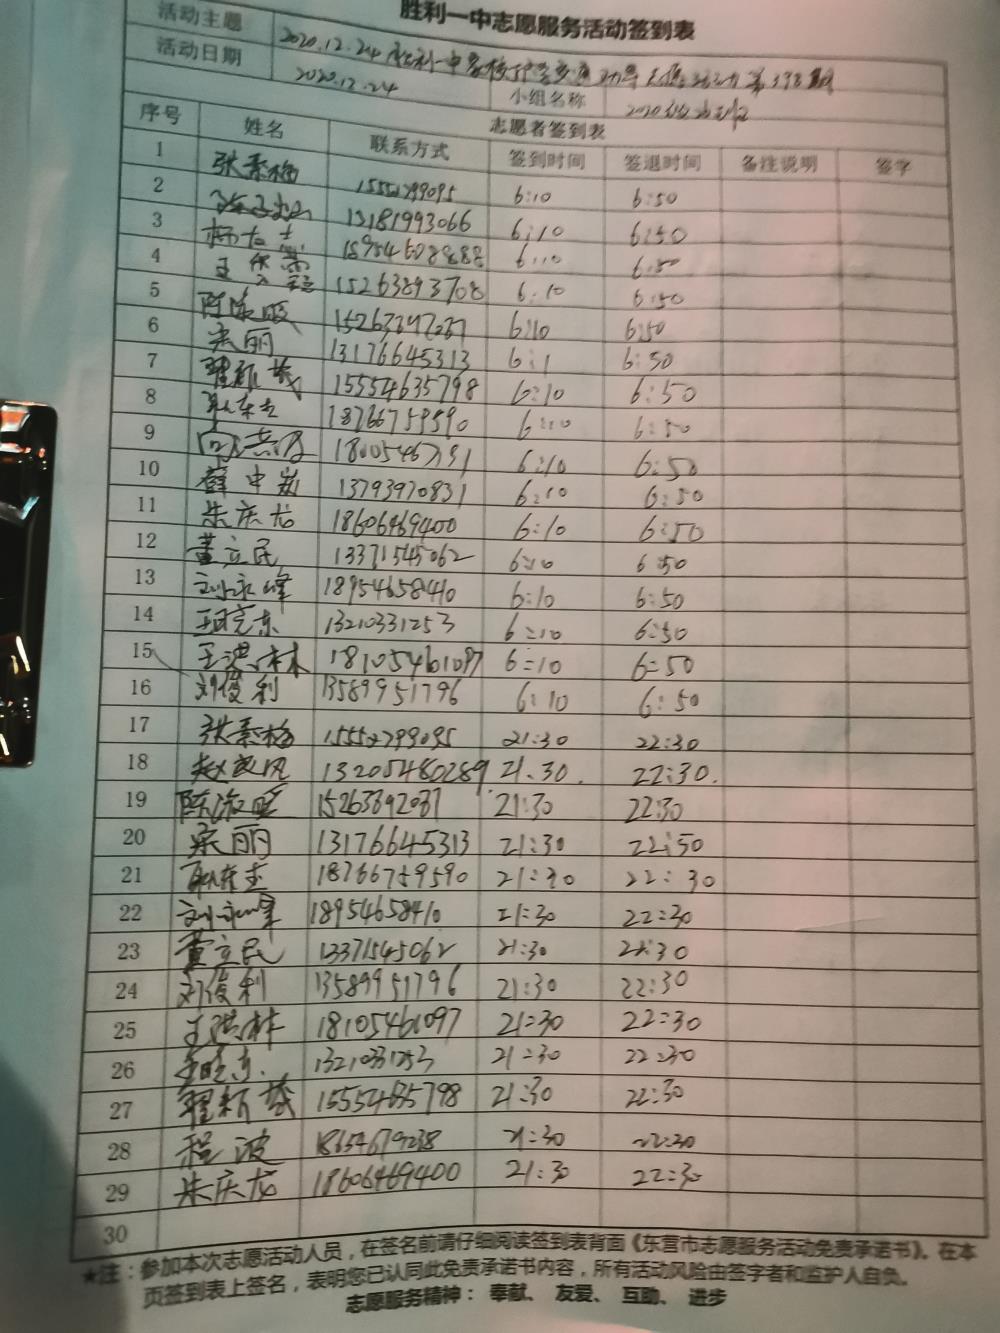 胜利一中志愿服务活动签到表
活动主题 2020.12.24 胜利一中 第398期
活动日期 2020.12.24 小组名称 2020
志愿者签到表
序号 姓名 联系方式 签到时间 签退时间 备注说明 签字
1 张素梅 15552799095 6:10 6:50
2 13181993066 6:10 6:50
3 18954608888 6:10 6:50
4 15263893708 6:10 6:50
5 陈淑暖 6:10 6:50
6 宋丽 13176645313 6:1 6:50
7 翟新英 15554635798 6:10 6:50
8 耿东志 18766759590 6:10 6:50
9 6:10 6:50
10 薛中彬 13793970831 6:10 6:50
11 朱庆龙 18606469400 6:10 6:50
12 董立民 13371545062 6:10 6:50
13 刘永峰 18954658410 6:10 6:50
14 13210331253 6:10 6:50
15 王洪林 18105461097 6:10 6:50
16 刘俊利 13589951796 6:10 6:50
17 张素梅 15552799095 21:30 22:30
18 13205480289 21.30. 22:30.
19 陈淑暖 15263892087 21:30 22:30
20 宋丽 13176645313 21:30 22:50
21 耿东志 18766759590 21:30 22:30
22 刘永峰 18954658410 21:30 22:30
23 董立民 13371545062 21:30 22:30
24 刘俊利 13589951796 21:30 22:30
25 王洪林 18105461097 21:30 22:30
26 13210331253 21:30 22:30
27 翟新英 15554635798 21:30 22:30
28 程波 18654679238 21:30 22:30
29 朱庆龙 18606469400 21:30 22:30
30
★注：参加本次志愿活动人员，在签名前请仔细阅读签到表背面《东营市志愿服务活动免责承诺书》。在本
页签到表上签名，表明您已认同此免责承诺书内容，所有活动风险由签字者和监护人自负。
志愿服务精神：奉献、友爱、互助、进步